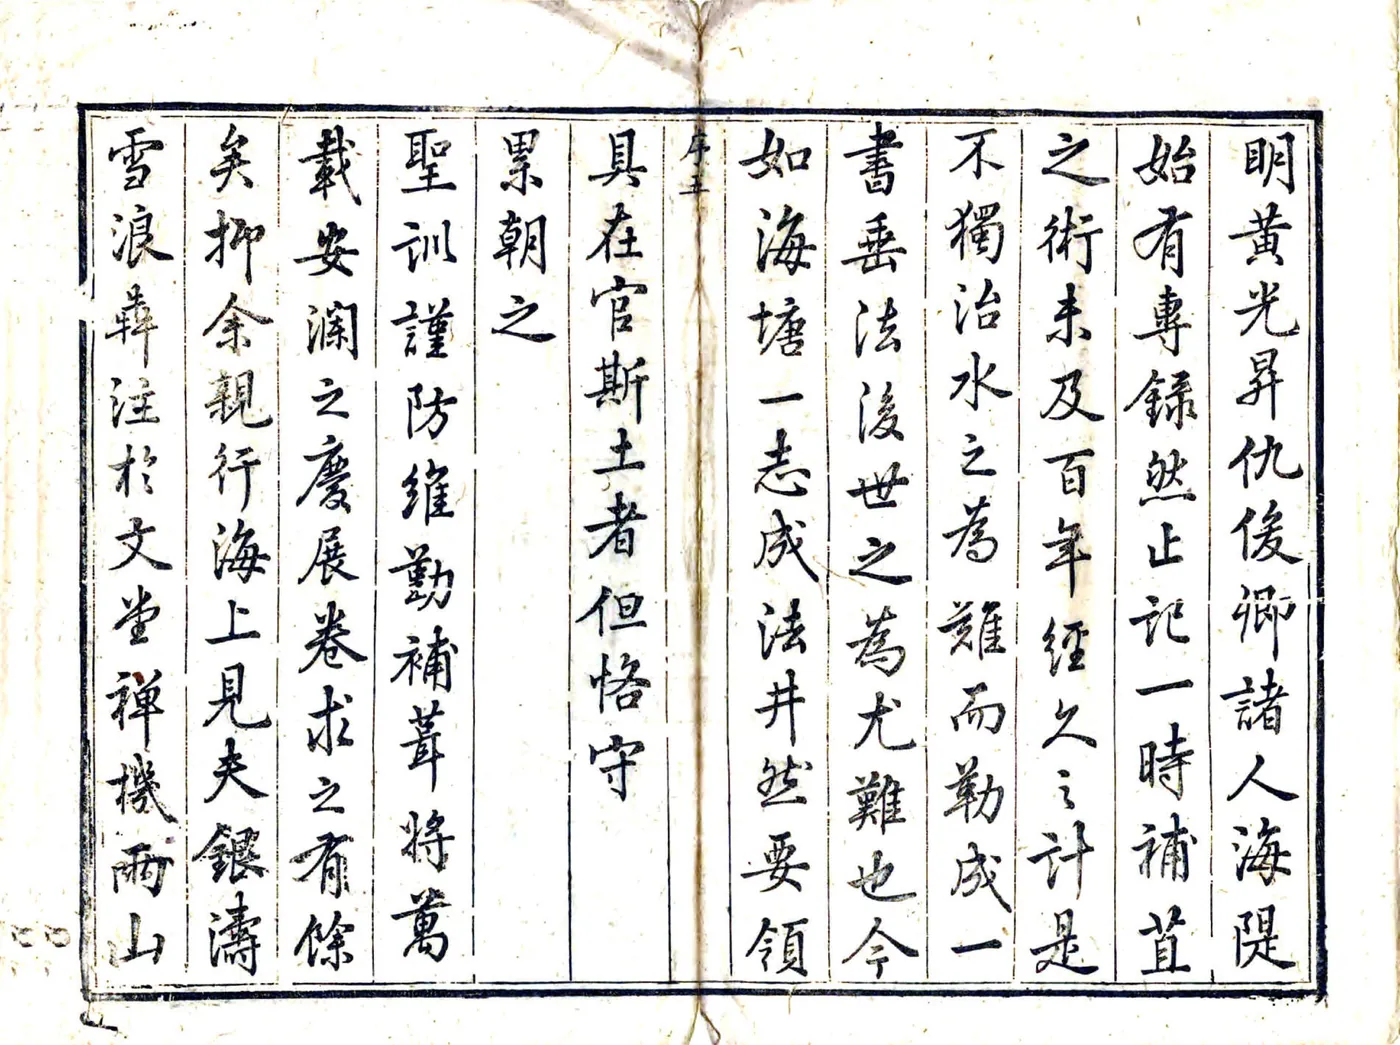 明黄光昇仇俊卿諸人海隄
始有專録然止記一時補苴
之術未及百年經久之計是
不獨治水之為難而勒成一
書垂法後世之為尤難也今
如海塘一志成法井然要領
序五
具在官斯土者但恪守
累朝之
聖訓謹防維勤補葺將萬
載安瀾之慶展卷求之有餘
矣抑余親行海上見夫銀濤
雪浪犇注於文堂禅機兩山